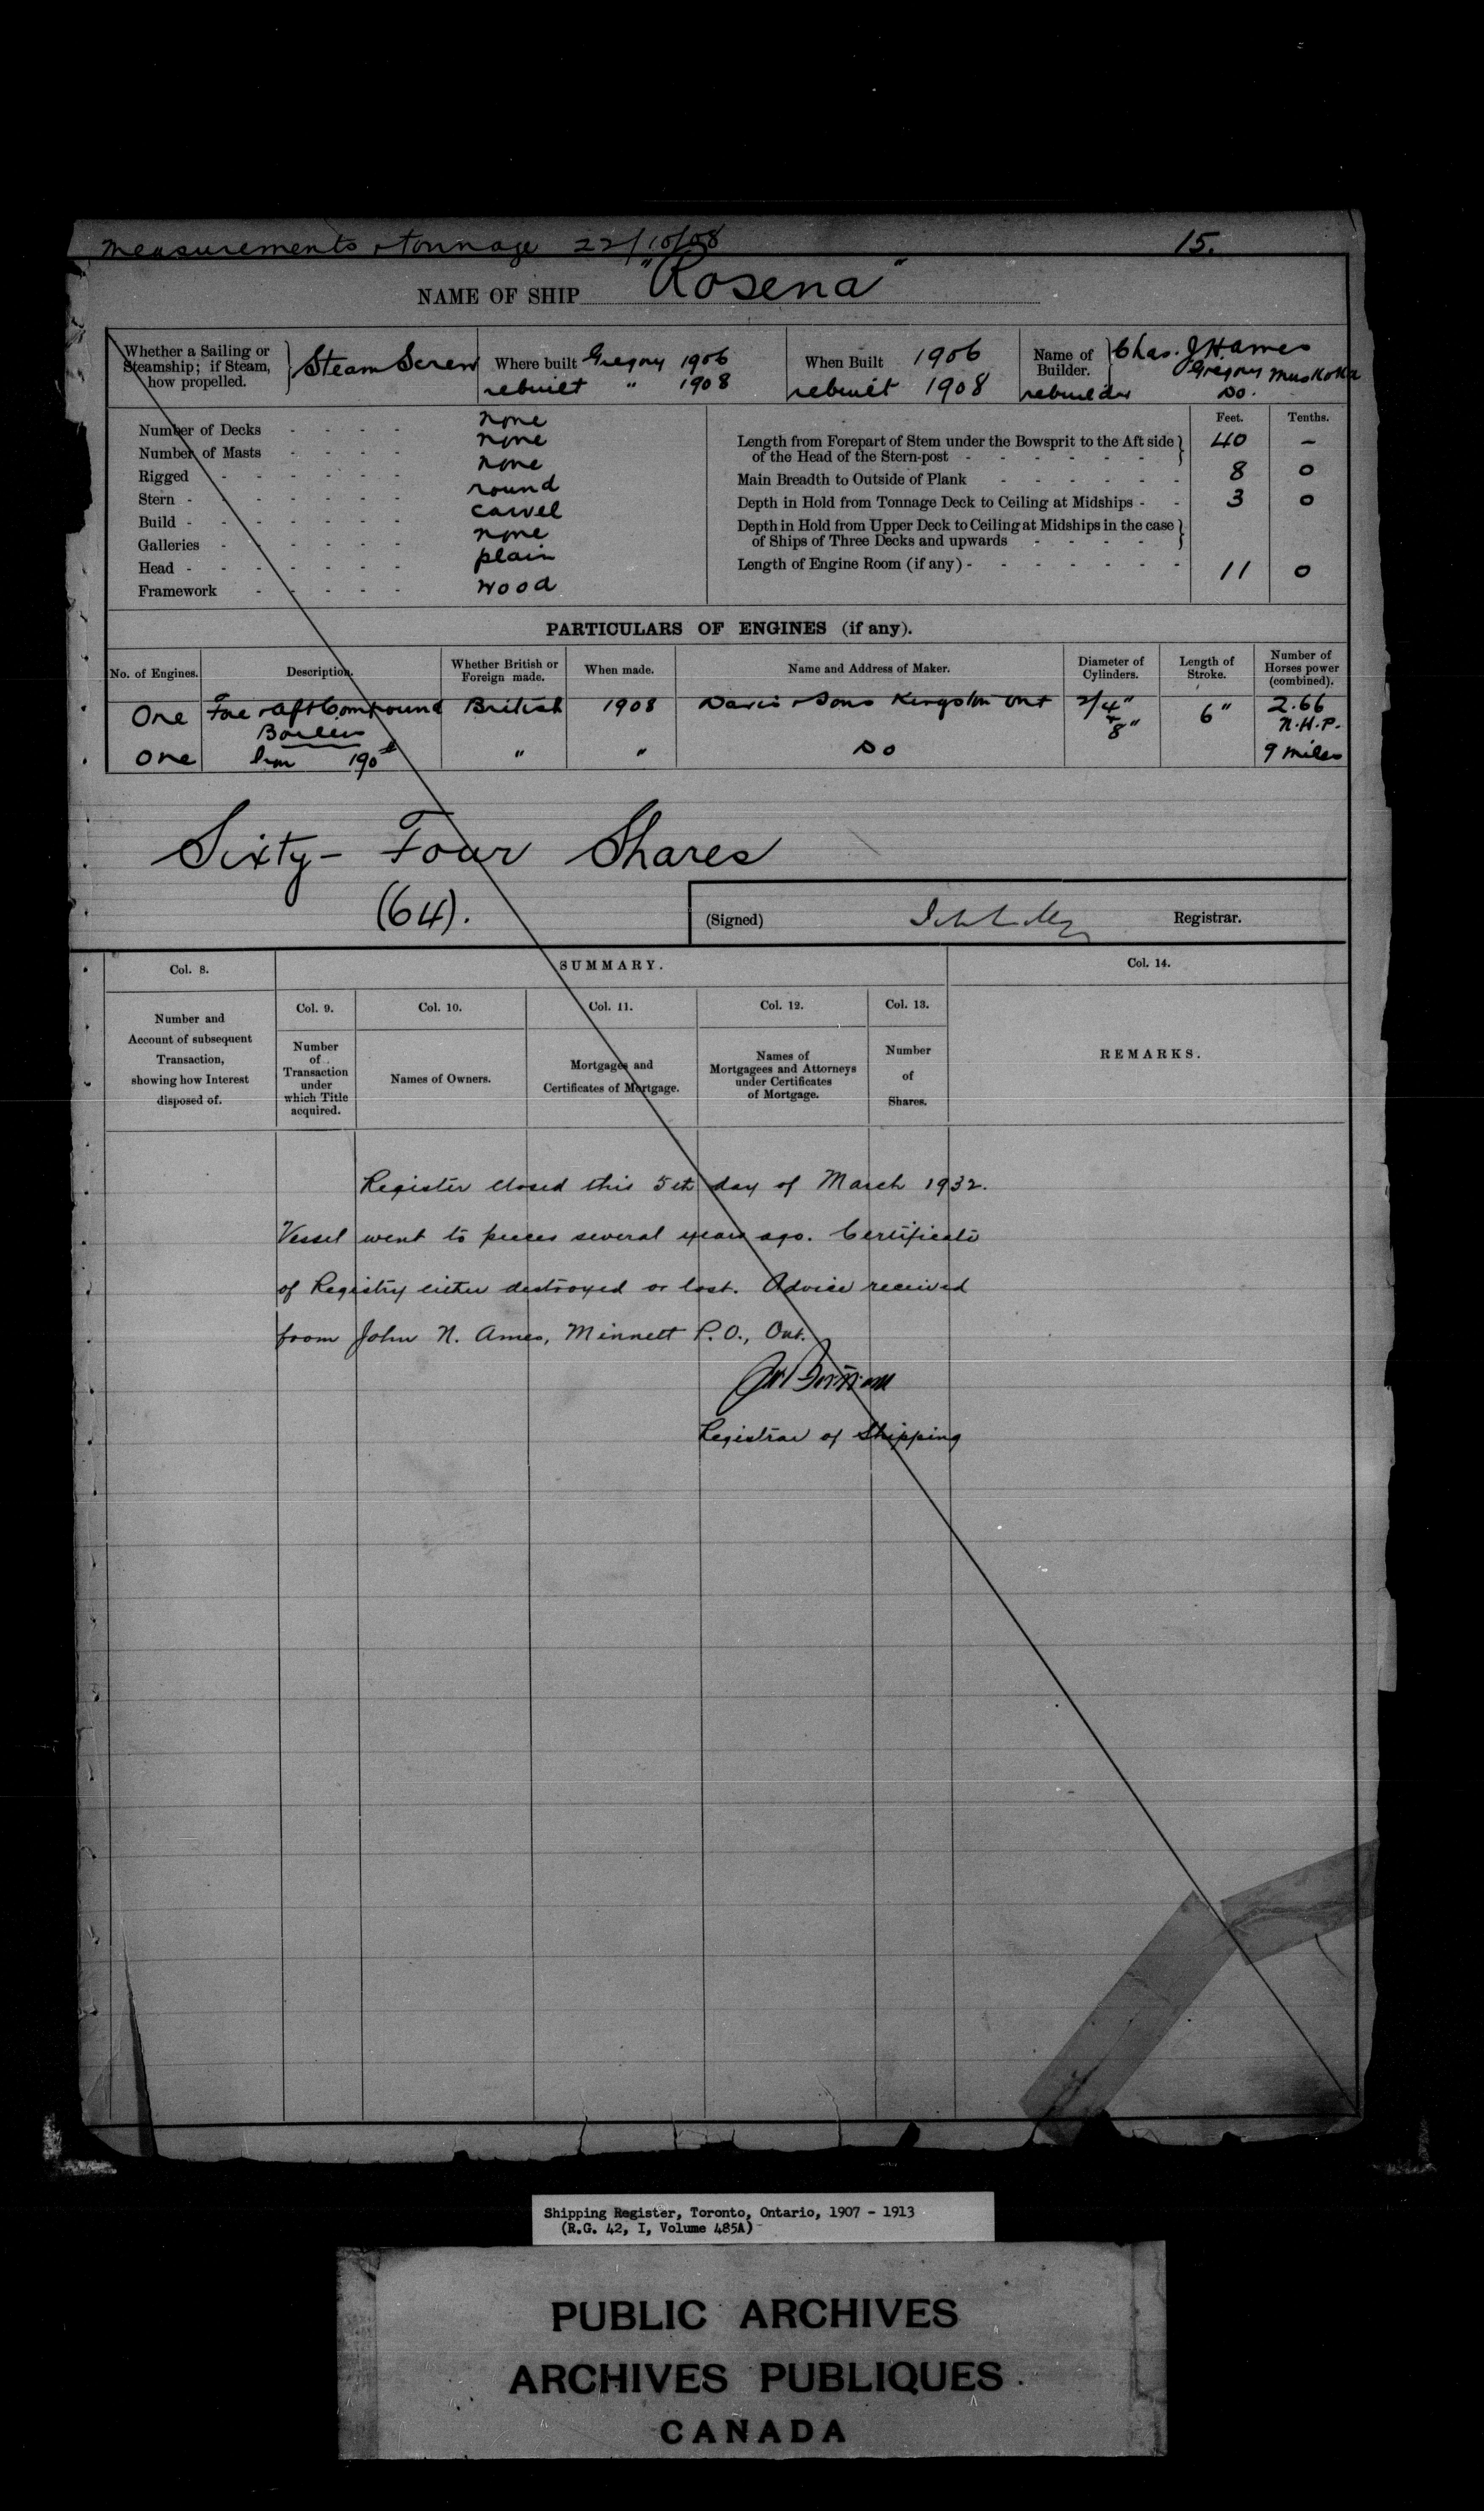 measurements & tonnage 22/10/08 15.
NAME OF SHIP "Rosena"
Whether a Sailing or Steamship; if Steam, how propelled. Steam Screw
Where built Gregory 1906
rebuilt " 1908
When Built 1906
rebuilt 1908
Name of Builder. Chas. J H Ames
Gregory Muskoka
rebuilder Do.
Number of Decks none
Number of Masts none
Rigged none
Stern round
Build carvel
Galleries none
Head plain
Framework wood
Feet. Tenths.
Length from Forepart of Stem under the Bowsprit to the Aft side of the Head of the Stern-post 40 –
Main Breadth to Outside of Plank 8 0
Depth in Hold from Tonnage Deck to Ceiling at Midships 3 0
Depth in Hold from Upper Deck to Ceiling at Midships in the case of Ships of Three Decks and upwards
Length of Engine Room (if any) 11 0
PARTICULARS OF ENGINES (if any).
No. of Engines. Description. Whether British or Foreign made. When made. Name and Address of Maker. Diameter of Cylinders. Length of Stroke. Number of Horses power (combined).
One Fore & Aft Compound British 1908 Davis & Sons Kingston Ont 4" & 8" 6" 2.66 N.H.P.
Boilers
One Iron 190 " " Do 9 miles
Sixty-Four Shares
(64).
(Signed) Registrar.
Col. 8. SUMMARY. Col. 14.
Number and Account of subsequent Transaction, showing how Interest disposed of.
Col. 9. Number of Transaction under which Title acquired.
Col. 10. Names of Owners.
Col. 11. Mortgages and Certificates of Mortgage.
Col. 12. Names of Mortgagees and Attorneys under Certificates of Mortgage.
Col. 13. Number of Shares.
REMARKS.
Register closed this 5th day of March 1932.
Vessel went to pieces several years ago. Certificate
of Registry either destroyed or lost. Advice received
from John N. Ames, Minnett P.O., Ont.
Registrar of Shipping
Shipping Register, Toronto, Ontario, 1907 - 1913
(R.G. 42, I, Volume 485A)
PUBLIC ARCHIVES
ARCHIVES PUBLIQUES
CANADA